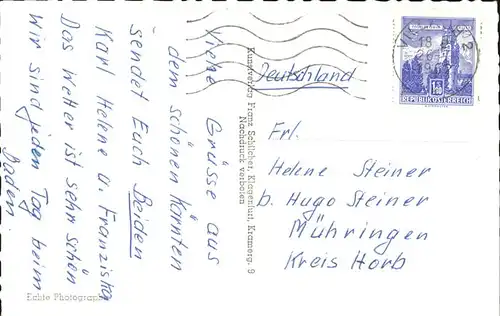 Viele Grüsse aus
dem schönen Kärnten
sendet Euch Beiden
Karl Helene u. Franziska
Das Wetter ist sehr schön
Wir sind jeden Tag beim
Baden.
Echte Photographie
Kunstverlag Franz Schilcher, Klagenfurt, Kramerg. 9
Nachdruck verboten
REPUBLIK ÖSTERREICH
Deutschland
Frl.
Helene Steiner
b. Hugo Steiner
Mühringen
Kreis Horb